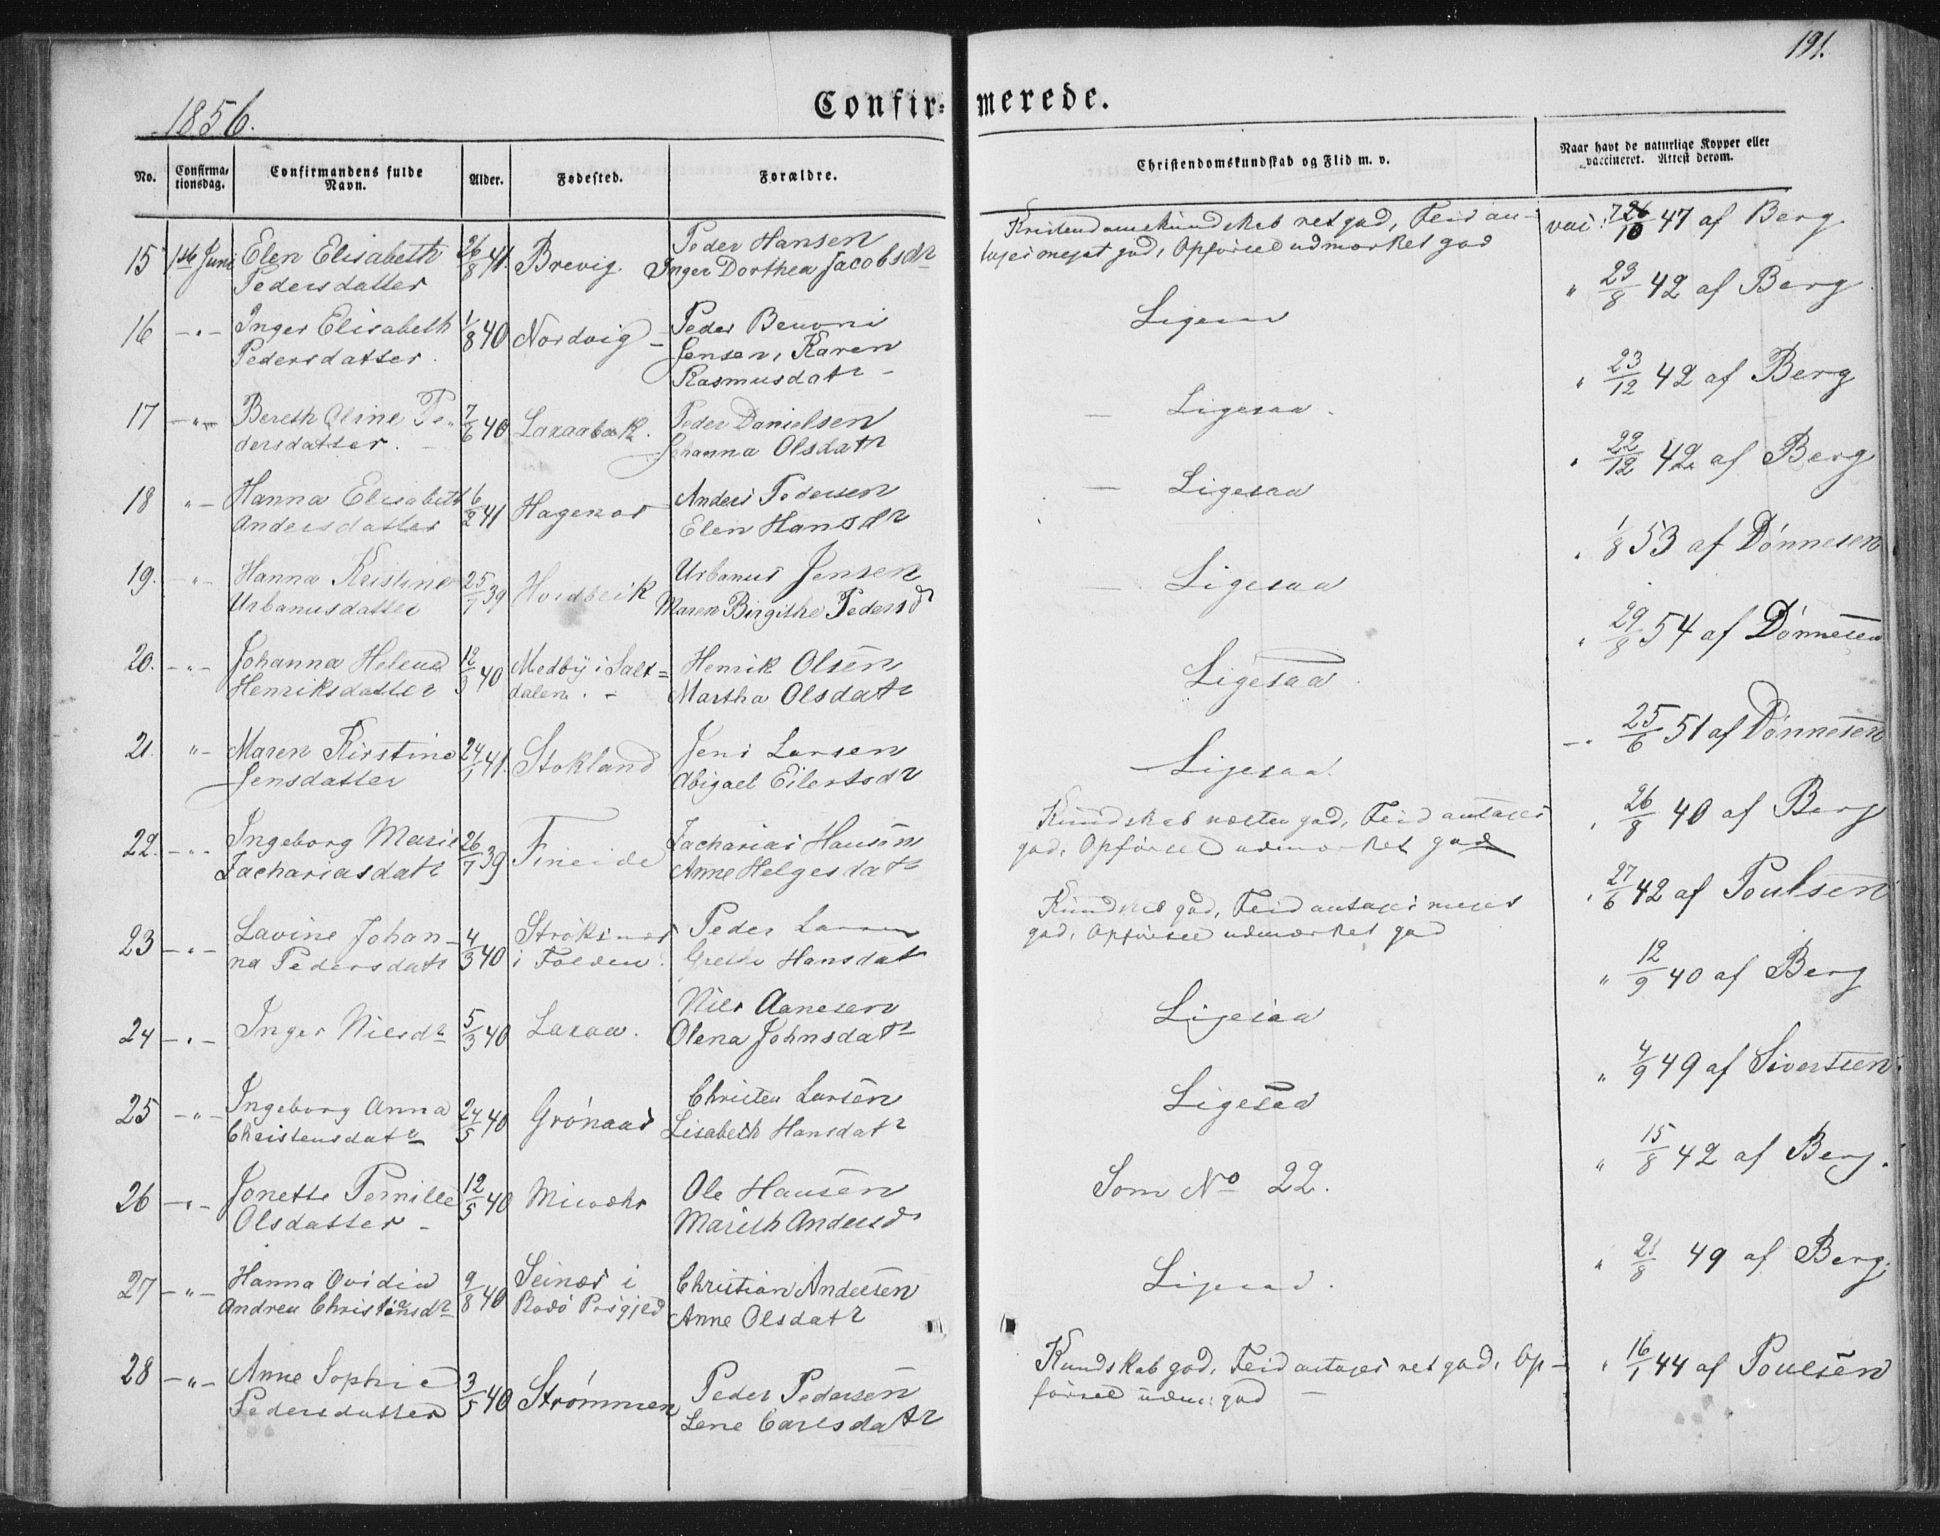 191.
1856.
Confirmerede.
No.
Confirmationsdag.
Confirmandens fulde Navn.
Alder.
Fødested.
Forældre.
Christendomskundskab og Flid m. v.
Naar havt de naturlige Kopper eller vaccineret. Attest derom.
15 1ste Juni Elen Elisabeth 26/8 41. Brevig. Peder Hansen
Pedersdatter Inger Dorthea Jacobsdr
Kristendomskundskab ret god, Flid an-
tages meget god, Opførsel udmærket god
vac: 26/10 47 af Berg.
16 -"- Inger Elisabeth 1/8 40 Nordvig - Peder Benoni
Pedersdatter. Jensen, Karen
Rasmusdatr -
Ligesaa
" 23/8 42 af Berg
17 -"- Bereth Oline Pe- 7/6 40 Laxaabak. Peder Danielsen
dersdatter. - Johanna Olsdatr
- Ligesaa.
" 23/12 42 af Berg
18 "- Hanna Elisabeth 6/2 41 Hagenes Anders Pedersen
Andersdatter Elen Hansdr
- Ligesaa
" 22/12 42 af Berg
19. -"- Hanna Kristine 25/7 39 Urbanus Jensen
Urbanusdatter Maren Birgithe Pedersd
- Ligesaa
" 1/8 53 af Dønnesen
20. -"- Johanna Helena 12/3 40 Medby i Salt= Henrik Olsen
Henriksdatter dalen. - Martha Olsdatr
Ligesaa
" 29/8 54 af Dønnesen
21. "- Maren Kirstine 24/1 41. Stokland Jens Larsen
Jensdatter Abigael Eilertsdr
Ligesaa.
-" 25/6 51 af Dønnesen
22. -"- Ingeborg Marie 26/7 39 Fineide Zacharias Hansen
Zachariasdatr Anne Helgesdatr
Kundskab næsten god, Flid antages
god, Opførsel udmærket god
" 26/8 40 af Berg
23 -"- Lavine Johan- 4/3 40 Strøksnes Peder Larsen
na Pedersdatr i Folden. Grethe Hansdat
Kundskab god, Flid antages meget
god, Opførsel udmærket god
" 27/6 42 af Poulsen
24 -"- Inger Nilsdr 5/3 40 Laxaa. Nils Aanesen
Olena Johnsdatr
Ligesaa
" 12/9 40 af Berg
25 -"- Ingeborg Anna 24/5 40 Grønaas Christen Larsen
Christensdatr Lisabeth Hansdatr
Ligesaa
" 4/9 49 af Sivertsen.
26 -"- Jonette Pernille 12/5 40 Misvær Ole Hansen
Olsdatter - Mareth Andersd
Som No 22.
" 15/8 42 af Berg.
27 -"- Hanna Ovidia 9/8 40 Seines i Christian Andersen
Andrea Christiansdr Rødø Præstgjeld Anne Olsdatr
Ligesaa.
" 21/8 49 af Berg.
28 -"- Anne Sophie 3/5 40 Strømmen Peder Pedersen
Pedersdatter Lene Carlsdatr
Kundskab god, Flid antages ret god, Op-
førsel udm: god -
" 16/1 44 af Poulsen